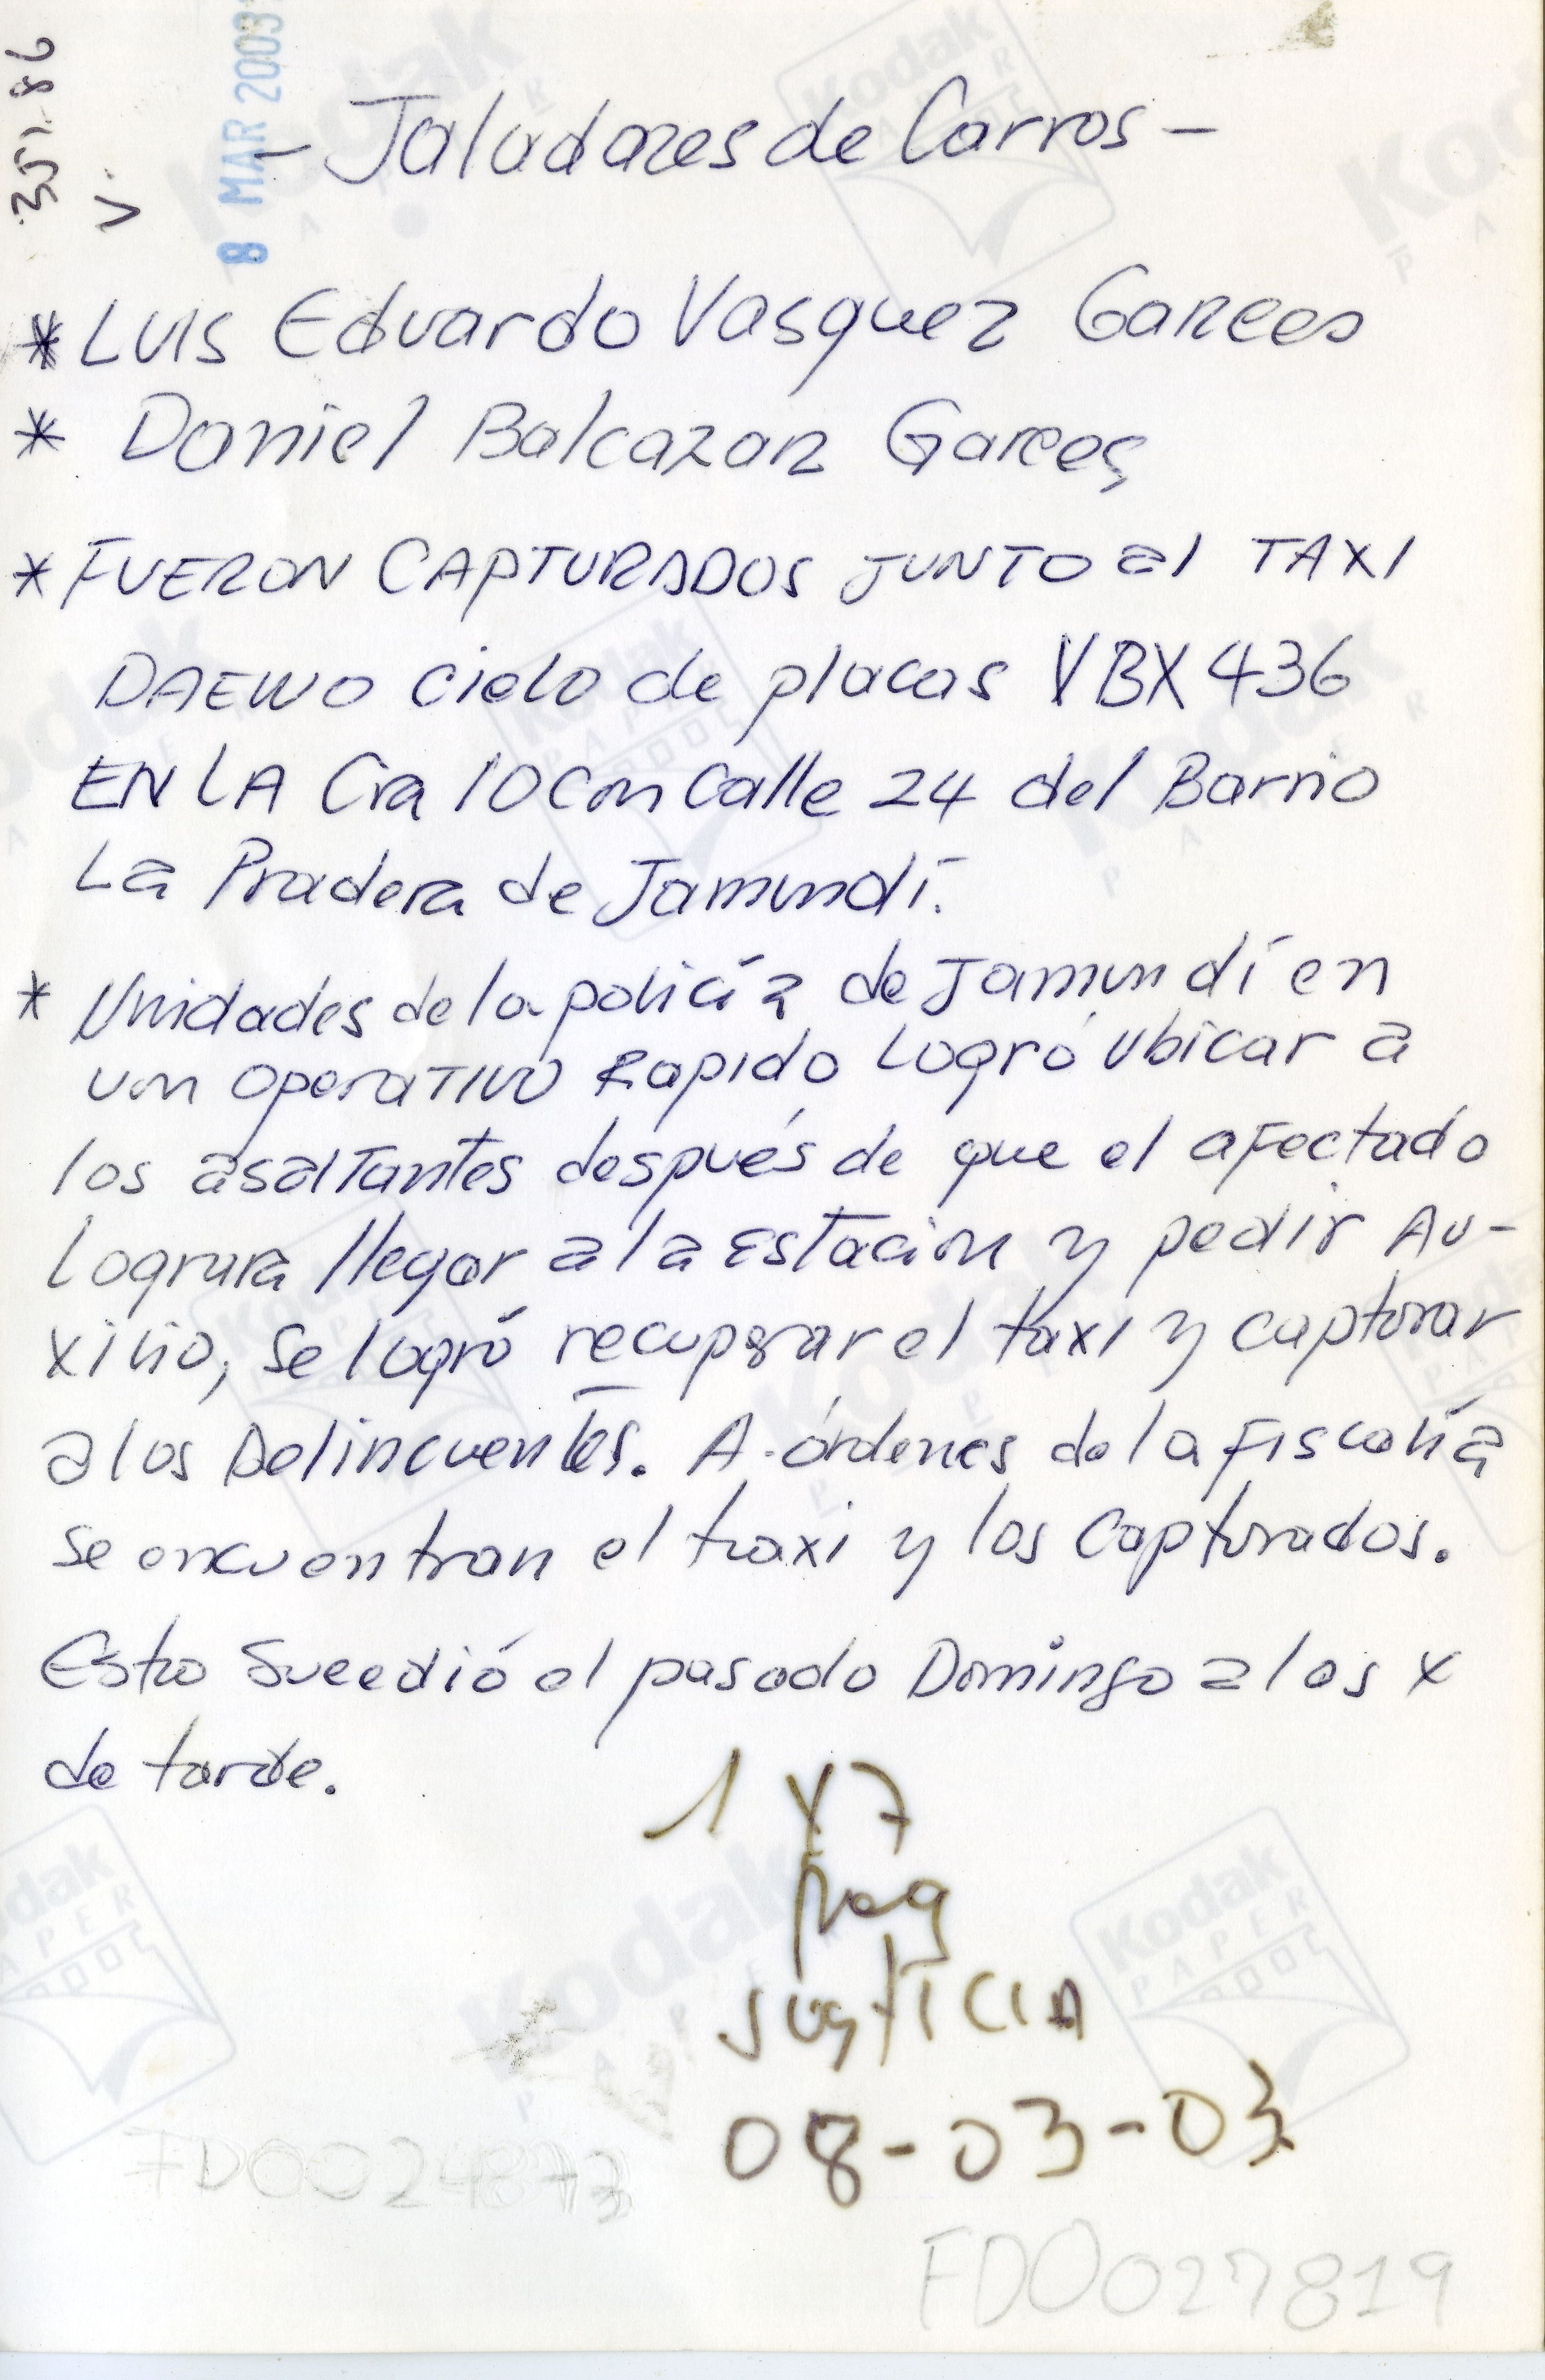 351.86
V.
8 MAR 2003
- Jaladores de Carros -
* Luis Eduardo Vasquez Garces
* Daniel Balcazar Garces
* FUERON CAPTURADOS JUNTO al TAXI
DAEWO cielo de placas VBX 436
EN LA Cra 10 con Calle 24 del Barrio
La Pradera de Jamundí.
* Unidades de la policía de Jamundí en
un operativo Rapido Logró ubicar a
los asaltantes después de que el afectado
lograra llegar a la Estación y pedir Au-
xilio, se logró recuperar el taxi y capturar
a los Delincuentes. A órdenes de la Fiscalía
se encuentran el taxi y los Capturados.
Esto Sucedió el pasado Domingo a las X
de tarde.
1 x 7
pag
JUSTICIA
08-03-03
FD0024873
FD0027819
Kodak
PAPER